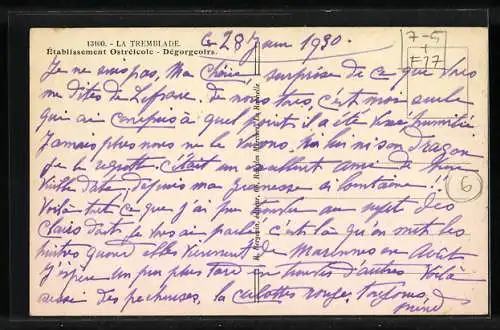 13100. - LA TREMBLADE.
Établissement Ostréicole - Dégorgeoirs.
Ce 28 Juin 1930.
7-5
+
F17
Je ne suis pas, Ma Chérie, surprise de ce que vous
me dites de Lefranc. De nous tous, c'est moi seule
qui ai compris à quel point il a été vexé humilié
Jamais plus nous ne le verrons. Ni lui ni son dragon
Je le regrette. C'était un excellent ami de
vieille date, depuis ma jeunesse si lointaine !!
6
Voilà tout ce que j'ai pu trouver au sujet des
claires dont je vous ai parlé. C'est là qu'on met les
huîtres quand elles viennent de Marennes en Août
J'espère un peu plus tard en trouver d'autres. Voilà
aussi des pêcheuses, la culottes rouge, toujours